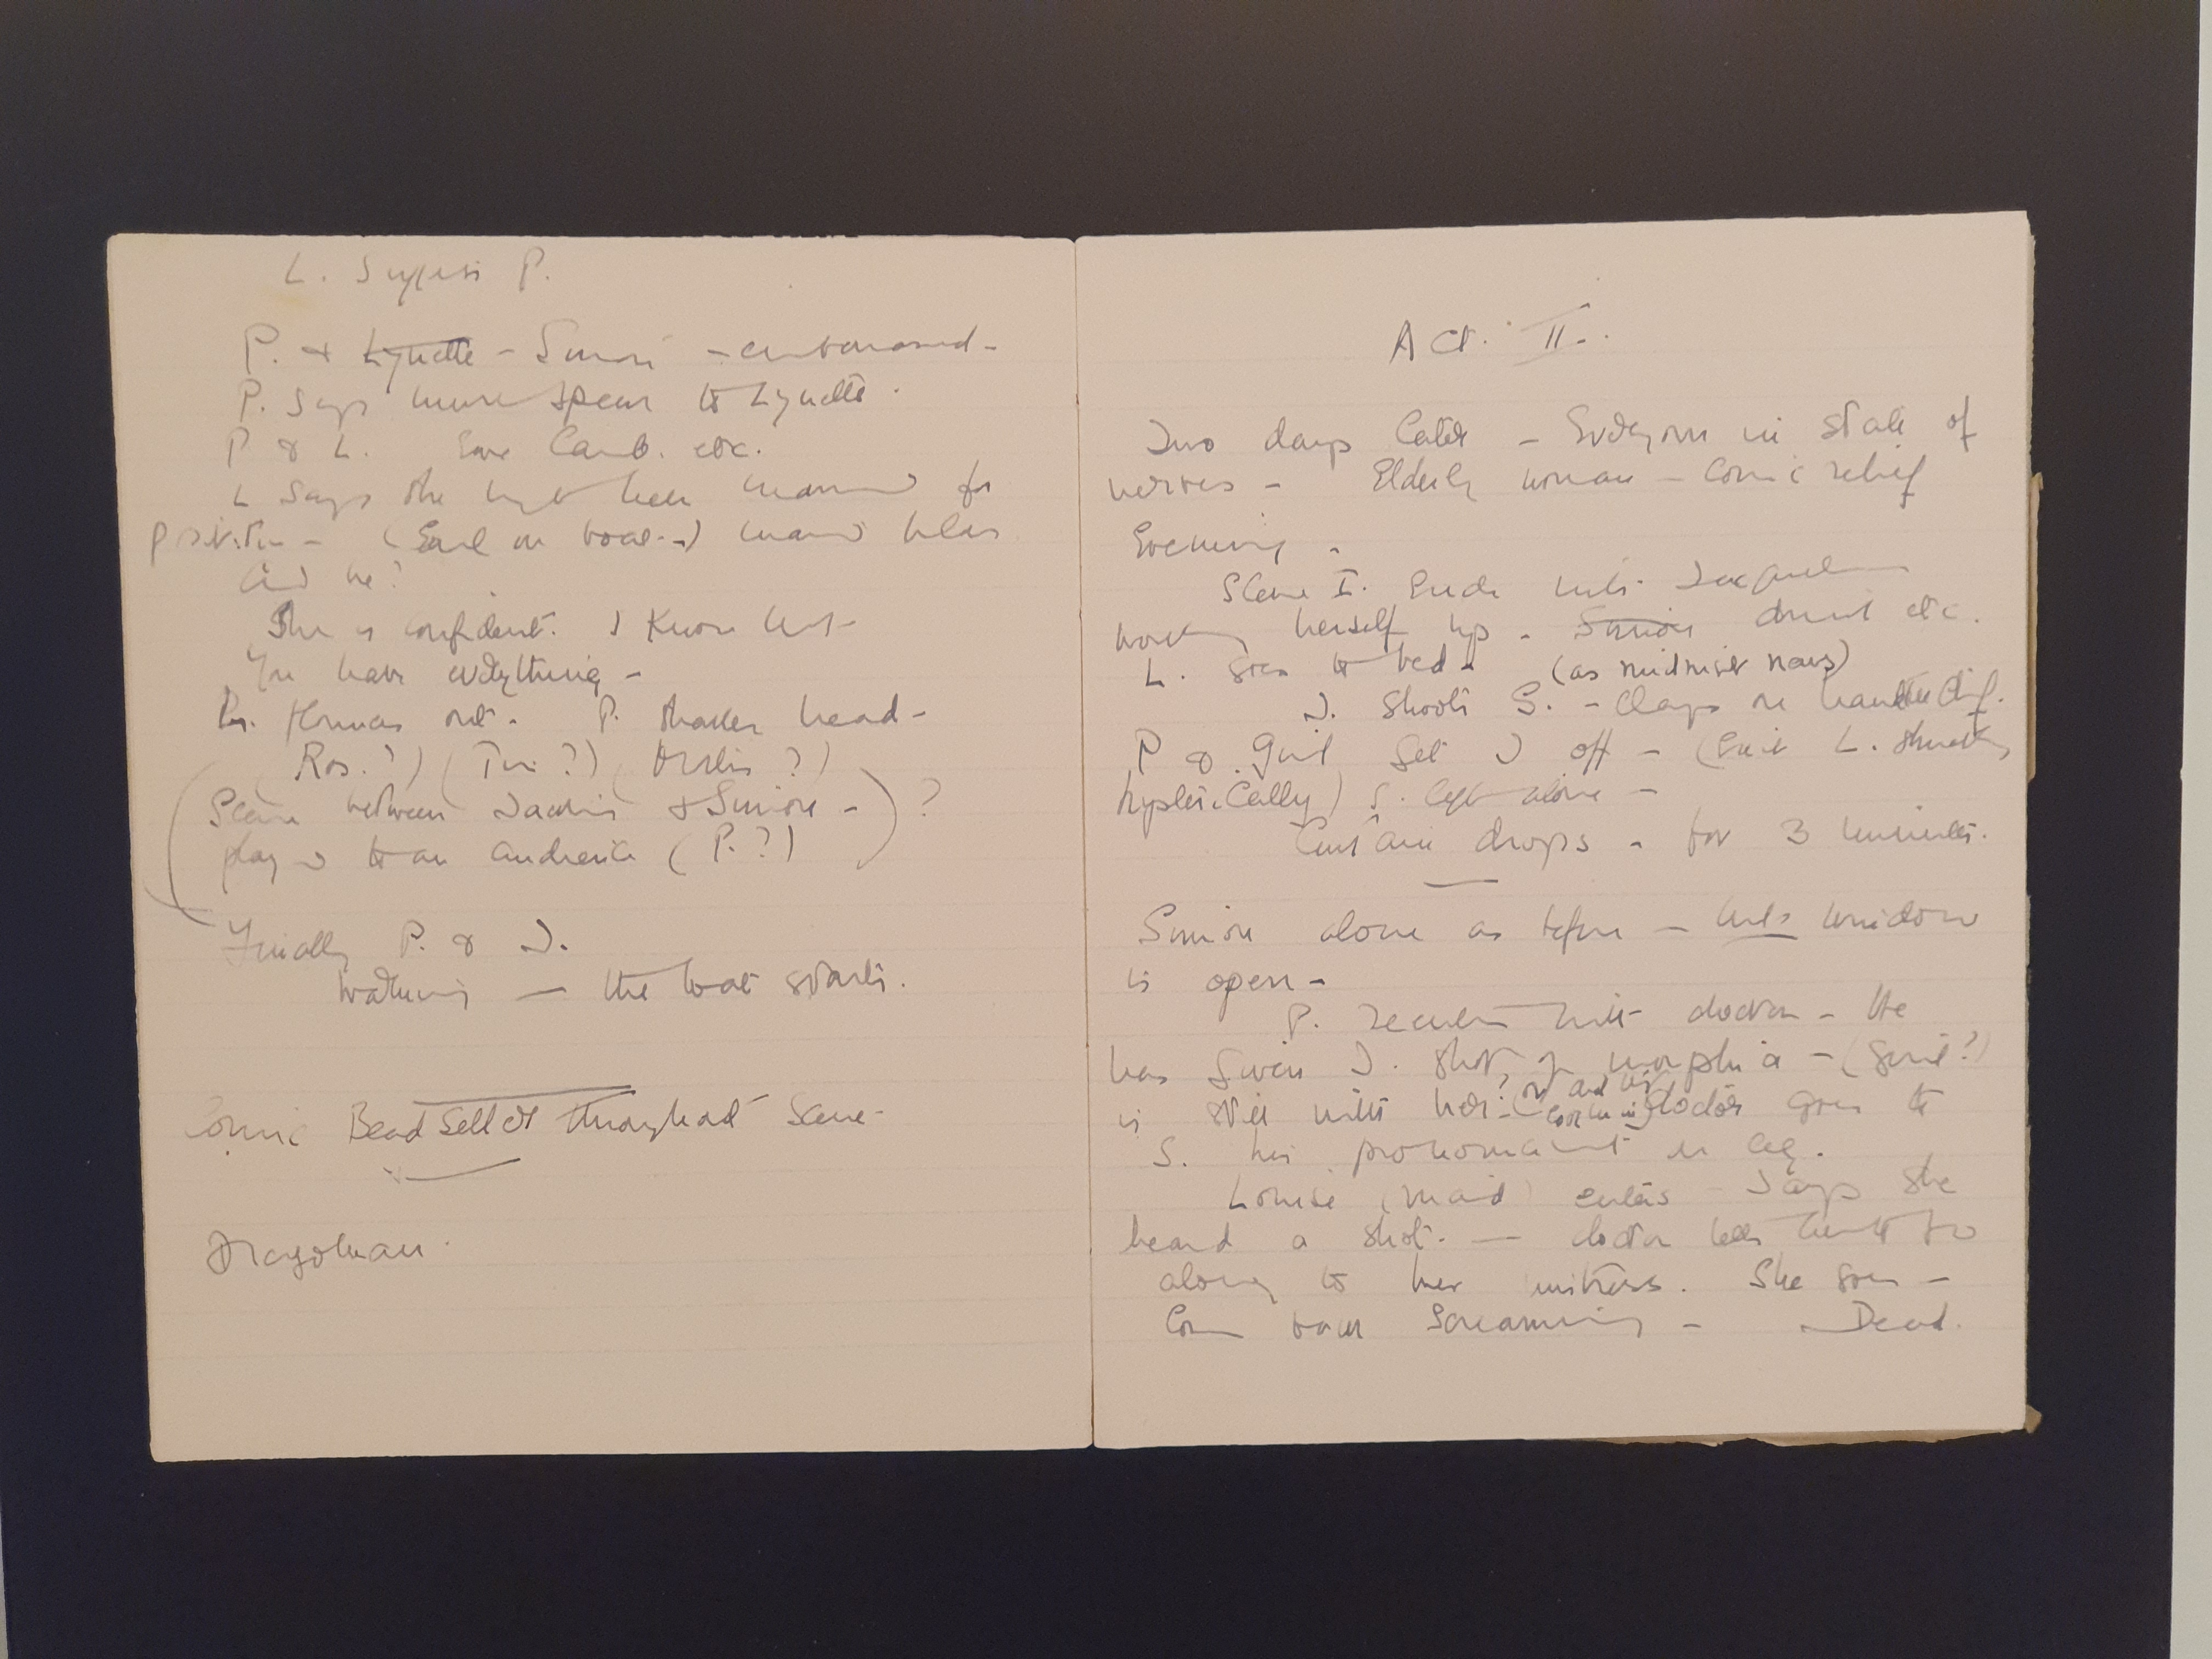 L. Suggests P.
P. & Lynette - Simon - embarrassed -
P. says must speak to Lynette.
P & L. Ewe Lamb. etc.
L says she might have married for
position - (Earl on boat -) married
And he?
She is confident. I know but -
You have everything -
P. shakes head -
Ros.?) (Tim?) ( ?)
(Scene between Jackie & Simon -) ?
played to an audience (P.?)
Finally P. & J.
warning — the boat starts.
Comic Bead Seller throughout Scene -
Dragoman.
Act. II.
Two days later - Everyone in state of
nerves - Elderly woman - Comic relief
Evening -
Scene I. Ends with Jacqueline
working herself up - Simon drunk etc.
L. goes to bed - (as midnight nears)
J. shoots S. - Clasps handkerchief.
P & girl get J off - (Exit L. shrieking
hysterically) S. left alone -
Curtain drops - for 3 minutes.
Simon alone as before - but window
is open -
P. returns with doctor - He
has given J. shot of morphia - (girl?)
is still with her? (or and is coming) doctor goes to
S. his pronouncement on leg.
Louise (maid) enters - Says she
heard a shot. — doctor tells her to go
along to her mistress. She goes -
Comes back Screaming - Dead.